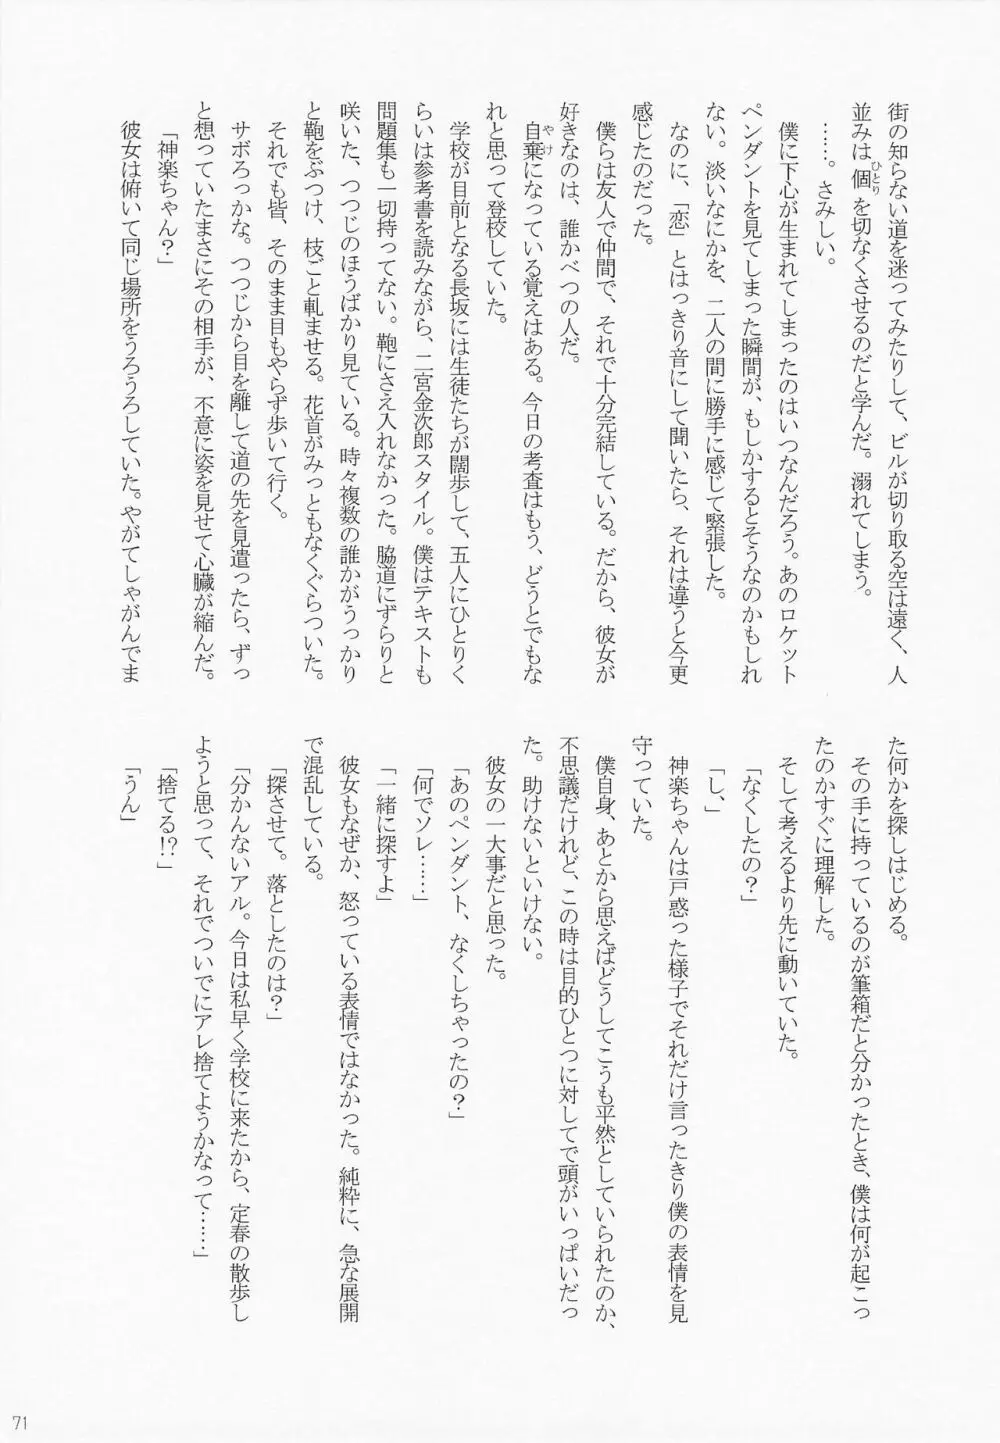 街の知らない道を迷ってみたりして、ビルが切り取る空は遠く、人
並みは個(ひとり)を切なくさせるのだと学んだ。溺れてしまう。
……。さみしい。
僕に下心が生まれてしまったのはいつなんだろう。あのロケット
ペンダントを見てしまった瞬間が、もしかするとそうなのかもしれ
ない。淡いなにかを、二人の間に勝手に感じて緊張した。
なのに、「恋」とはっきり音にして聞いたら、それは違うと今更
感じたのだった。
僕らは友人で仲間で、それで十分完結している。だから、彼女が
好きなのは、誰かべつの人だ。
自棄(やけ)になっている覚えはある。今日の考査はもう、どうとでもな
れと思って登校していた。
学校が目前となる長坂には生徒たちが闊歩して、五人にひとりく
らいは参考書を読みながら、二宮金次郎スタイル。僕はテキストも
問題集も一切持ってない。鞄にさえ入れなかった。脇道にずらりと
咲いた、つつじのほうばかり見ている。時々複数の誰かがうっかり
と鞄をぶつけ、枝ごと軋ませる。花首がみっともなくぐらついた。
それでも皆、そのまま目もやらず歩いて行く。
サボろっかな。つつじから目を離して道の先を見遣ったら、ずっ
と想っていたまさにその相手が、不意に姿を見せて心臓が縮んだ。
「神楽ちゃん？」
彼女は俯いて同じ場所をうろうろしていた。やがてしゃがんでま
た何かを探しはじめる。
その手に持っているのが筆箱だと分かったとき、僕は何が起こっ
たのかすぐに理解した。
そして考えるより先に動いていた。
「なくしたの？」
「し、」
神楽ちゃんは戸惑った様子でそれだけ言ったきり僕の表情を見
守っていた。
僕自身、あとから思えばどうしてこうも平然としていられたのか、
不思議だけれど、この時は目的ひとつに対してで頭がいっぱいだっ
た。助けないといけない。
彼女の一大事だと思った。
「あのペンダント、なくしちゃったの？」
「何でソレ……」
「一緒に探すよ」
彼女もなぜか、怒っている表情ではなかった。純粋に、急な展開
で混乱している。
「探させて。落としたのは？」
「分かんないアル。今日は私早く学校に来たから、定春の散歩し
ようと思って、それでついでにアレ捨てようかなって……」
「捨てる!?」
「うん」
71